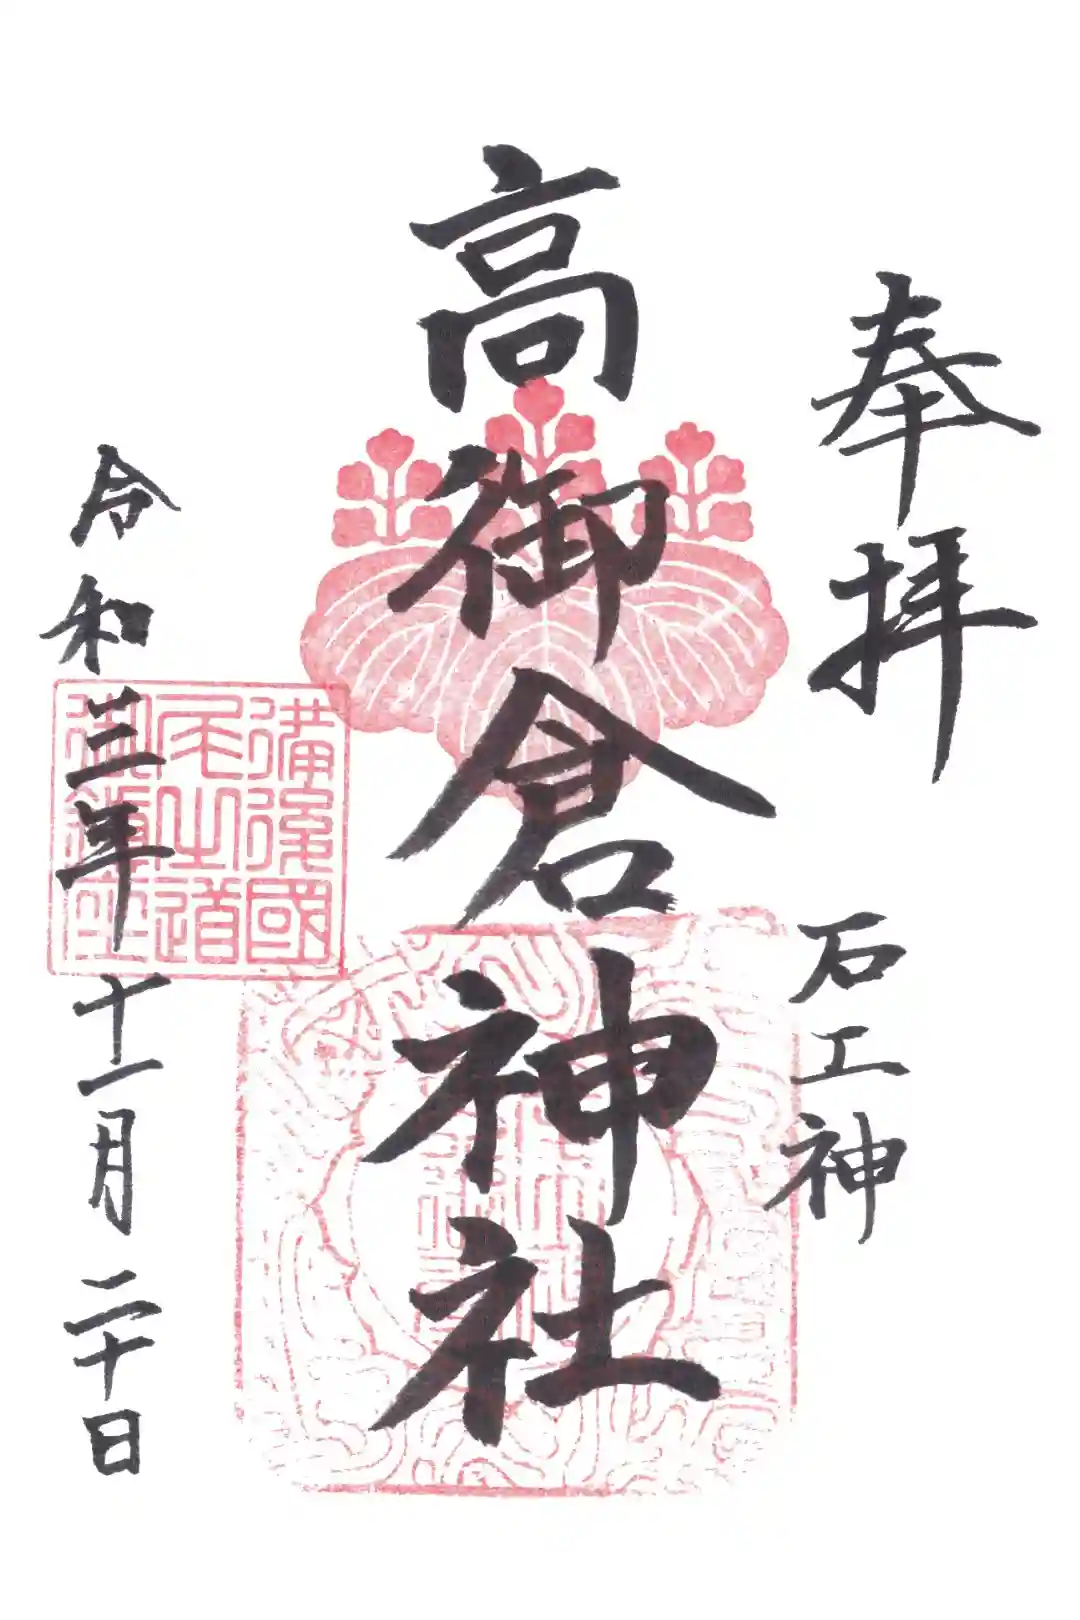 奉拝
石工神
高御倉神社
令和三年十一月二十日
備後國
尾之道
御鎮座